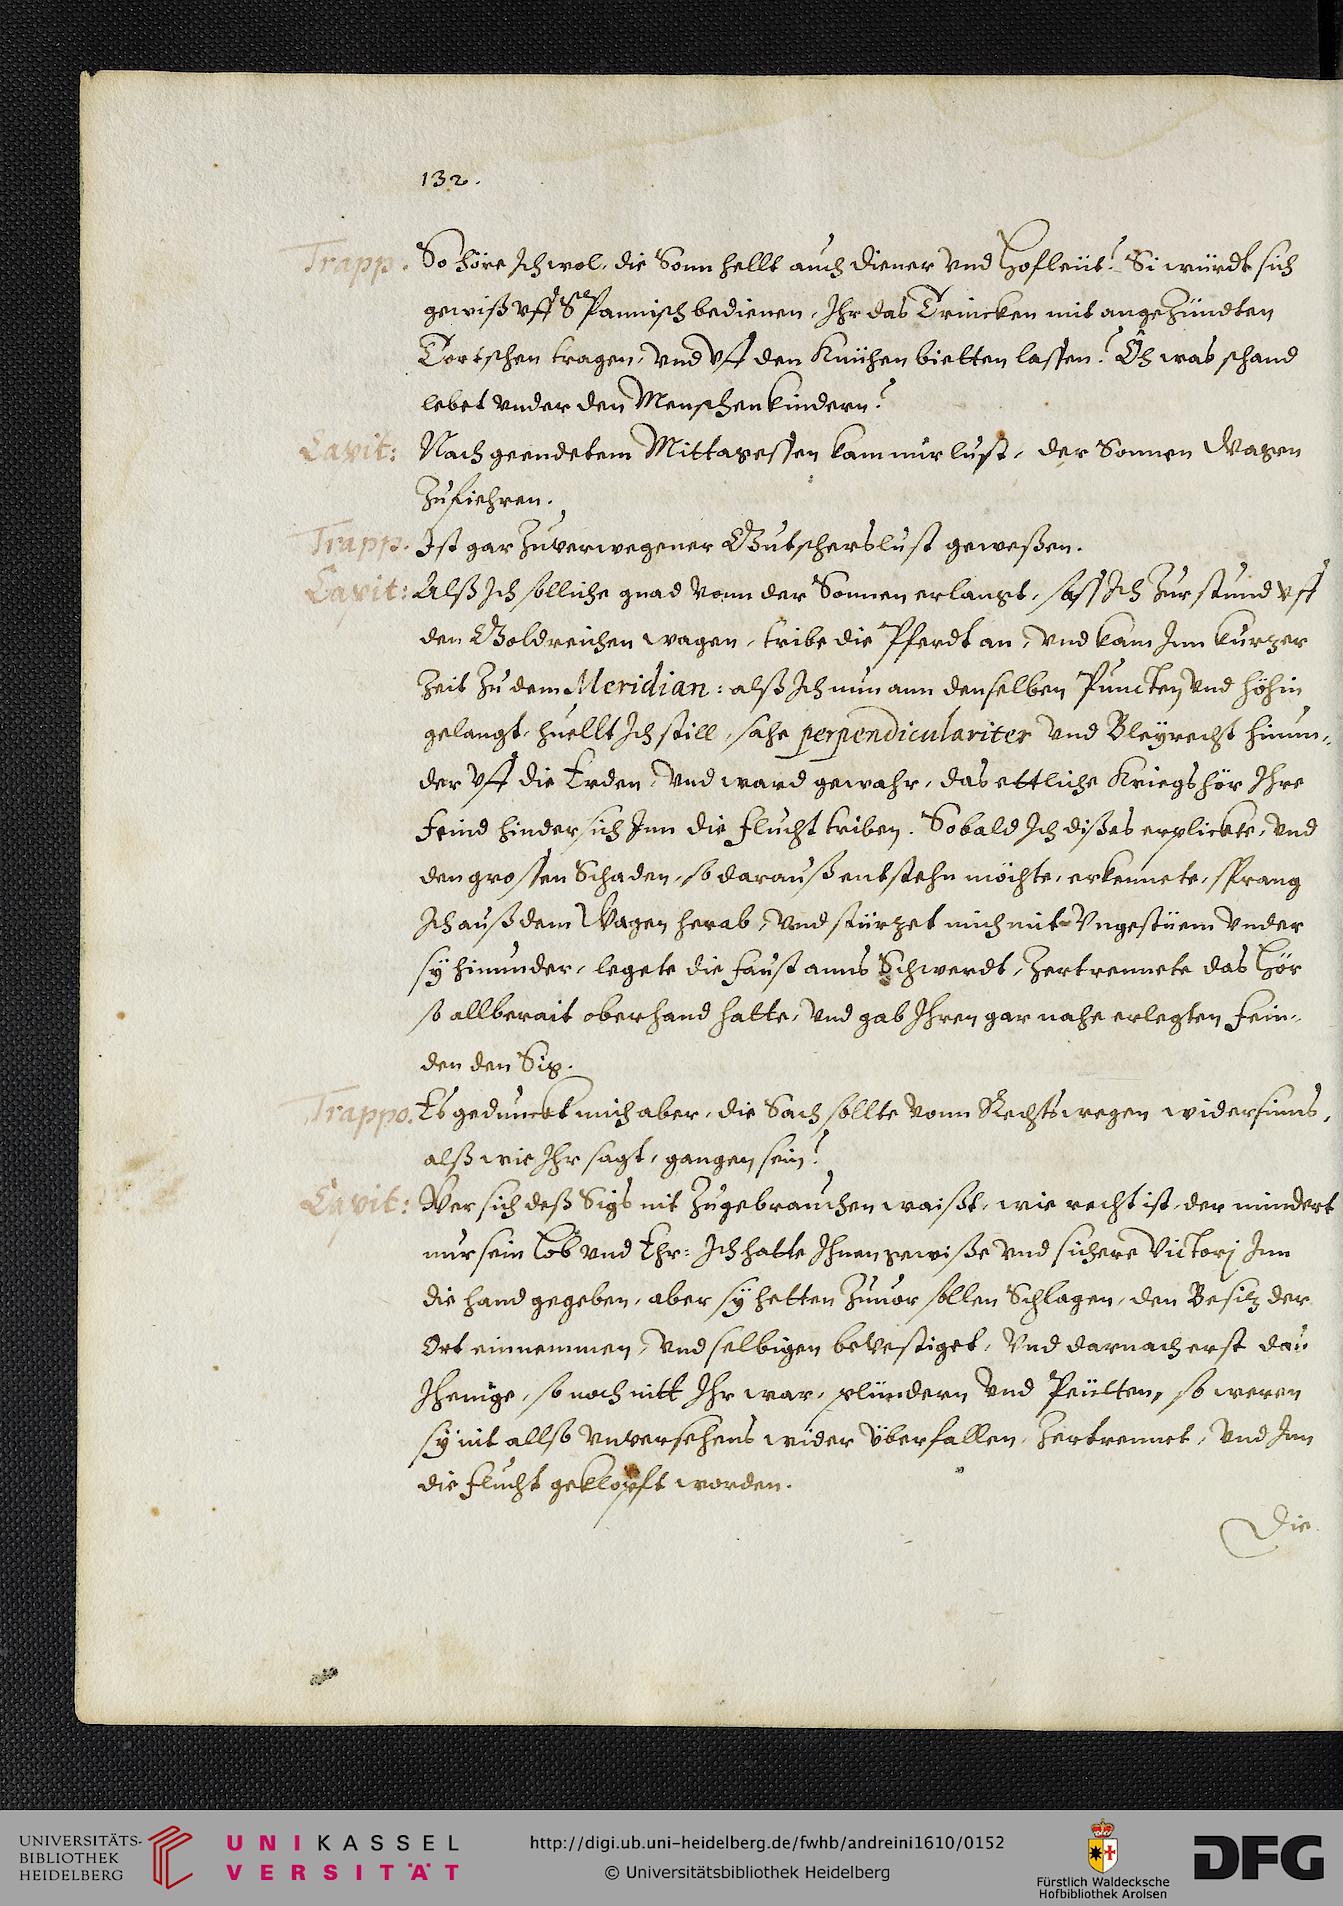 132.
Trapp. So höre Ich wol, die Sonn hellt auch diener vnd Hofleüt? Si würdt sich
gewiß vff Spannisch bedienen, Ihr das Trincken mit angezündten
Tortschen tragen, vnd vff den Knühen bietten lassen? Oh was schand
lebet vnder den Menschenkindern?
Capit: Nach geendetem Mittagessen kam mir lust, der Sonnen Wagen
zufiehren.
Trapp. Ist gar zuverwegener Gutscherslust geweßen.
Capit: Alß Ich solliche gnad vonn der Sonnen erlangt, saß Ich zur stund vff
den Goldreichen wagen, tribe die Pferdt an, vnd kam Inn kurzer
zeit zu dem Meridian: alß Ich nun ann denselben Puncten vnd höhin
gelangt, huellt Ich still, sahe perpendiculariter vnd Bleyrecht hinun-
der vff die Erden, vnd ward gewahr, das ettliche Kriegshör Ihre
Feind hindersich Inn die flucht triben. Sobald Ich dißes erplickte, vnd
den grossen Schaden, so darauß entstehn möchte, erkennete, sprang
Ich auß dem Wagen herab, vnd stürzet mich mit Vngestüem vnder
sÿ hinunder, legete die Faust anns Schwerdt, zertrennete das Hör
so allberait oberhand hatte, vnd gab Ihren gar nahe erlegten Fein-
den den Sig.
Trappo. Es gedunckt mich aber, die Sach sollte vonn Rechtswegen widersinns,
alß wie Ihr sagt, gangen sein?
Capit: Wer sich deß Sigs nit zugebrauchen waißt, wie recht ist, der mindert
nur sein Lob vnd Ehr: Ich hatte Ihnen gewiße vnd sichere Victorj Inn
die hand gegeben, aber sÿ hetten zuuor sollen Schlagen, den Besitz der
Ort einnemmen, vnd selbigen bevestiget, Vnd darnach erst das
Ihenige, so noch nitt Ihr war, plündern vnd Peülten, so weren
sÿ nit allso vnversehens wider überfallen, zertrennet, vnd Inn
die flucht geklopft worden.
Die
UNIVERSITÄTS-
BIBLIOTHEK
HEIDELBERG
UNIKASSEL
VERSITÄT
http://digi.ub.uni-heidelberg.de/fwhb/andreini1610/0152
© Universitätsbibliothek Heidelberg
Fürstlich Waldecksche
Hofbibliothek Arolsen
DFG